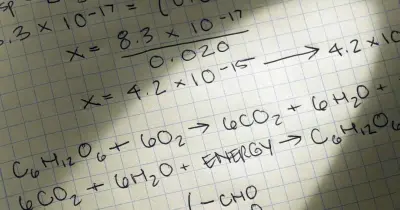 sp
8.3 × 10⁻¹⁷ = (0.0
x = 8.3 × 10⁻¹⁷
0.020
x = 4.2 × 10⁻¹⁵ → 4.2 × 10
C₆H₁₂O₆ + 6O₂ → 6CO₂ + 6H₂O +
6CO₂ + 6H₂O + ENERGY → C₆H₁₂O₆
(-CHO